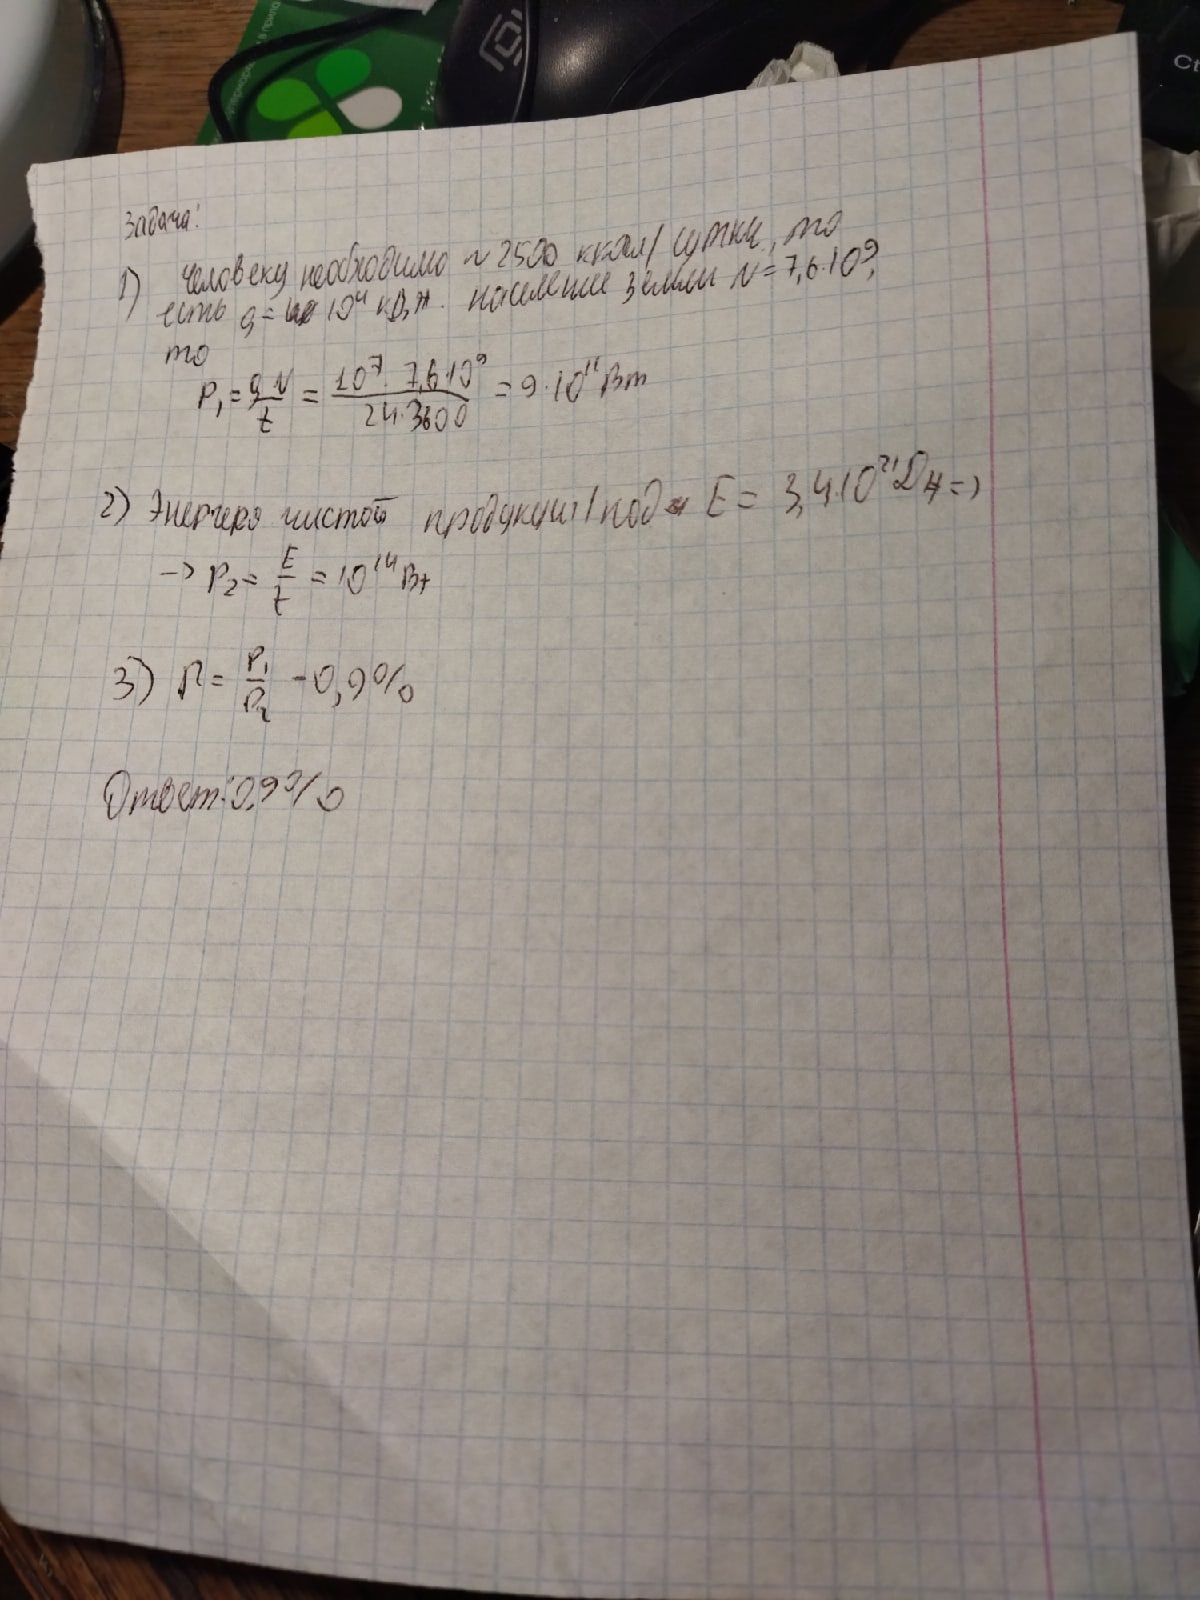 Задача:
1) Человеку необходимо ~ 2500 ккал/сутки, то
есть q = 10⁴ кДж. население земли N = 7,6·10⁹,
то
P₁ = qN/t = 10⁷ · 7,6·10⁹ / 24·3600 = 9·10¹¹ Вт
2) Энергия чистой продукции/год E = 3,4·10²¹ Дж =>
-> P₂ = E/t = 10¹⁴ Вт
3) П = P₁/P₂ - 0,9%
Ответ: 0,9%
Ст